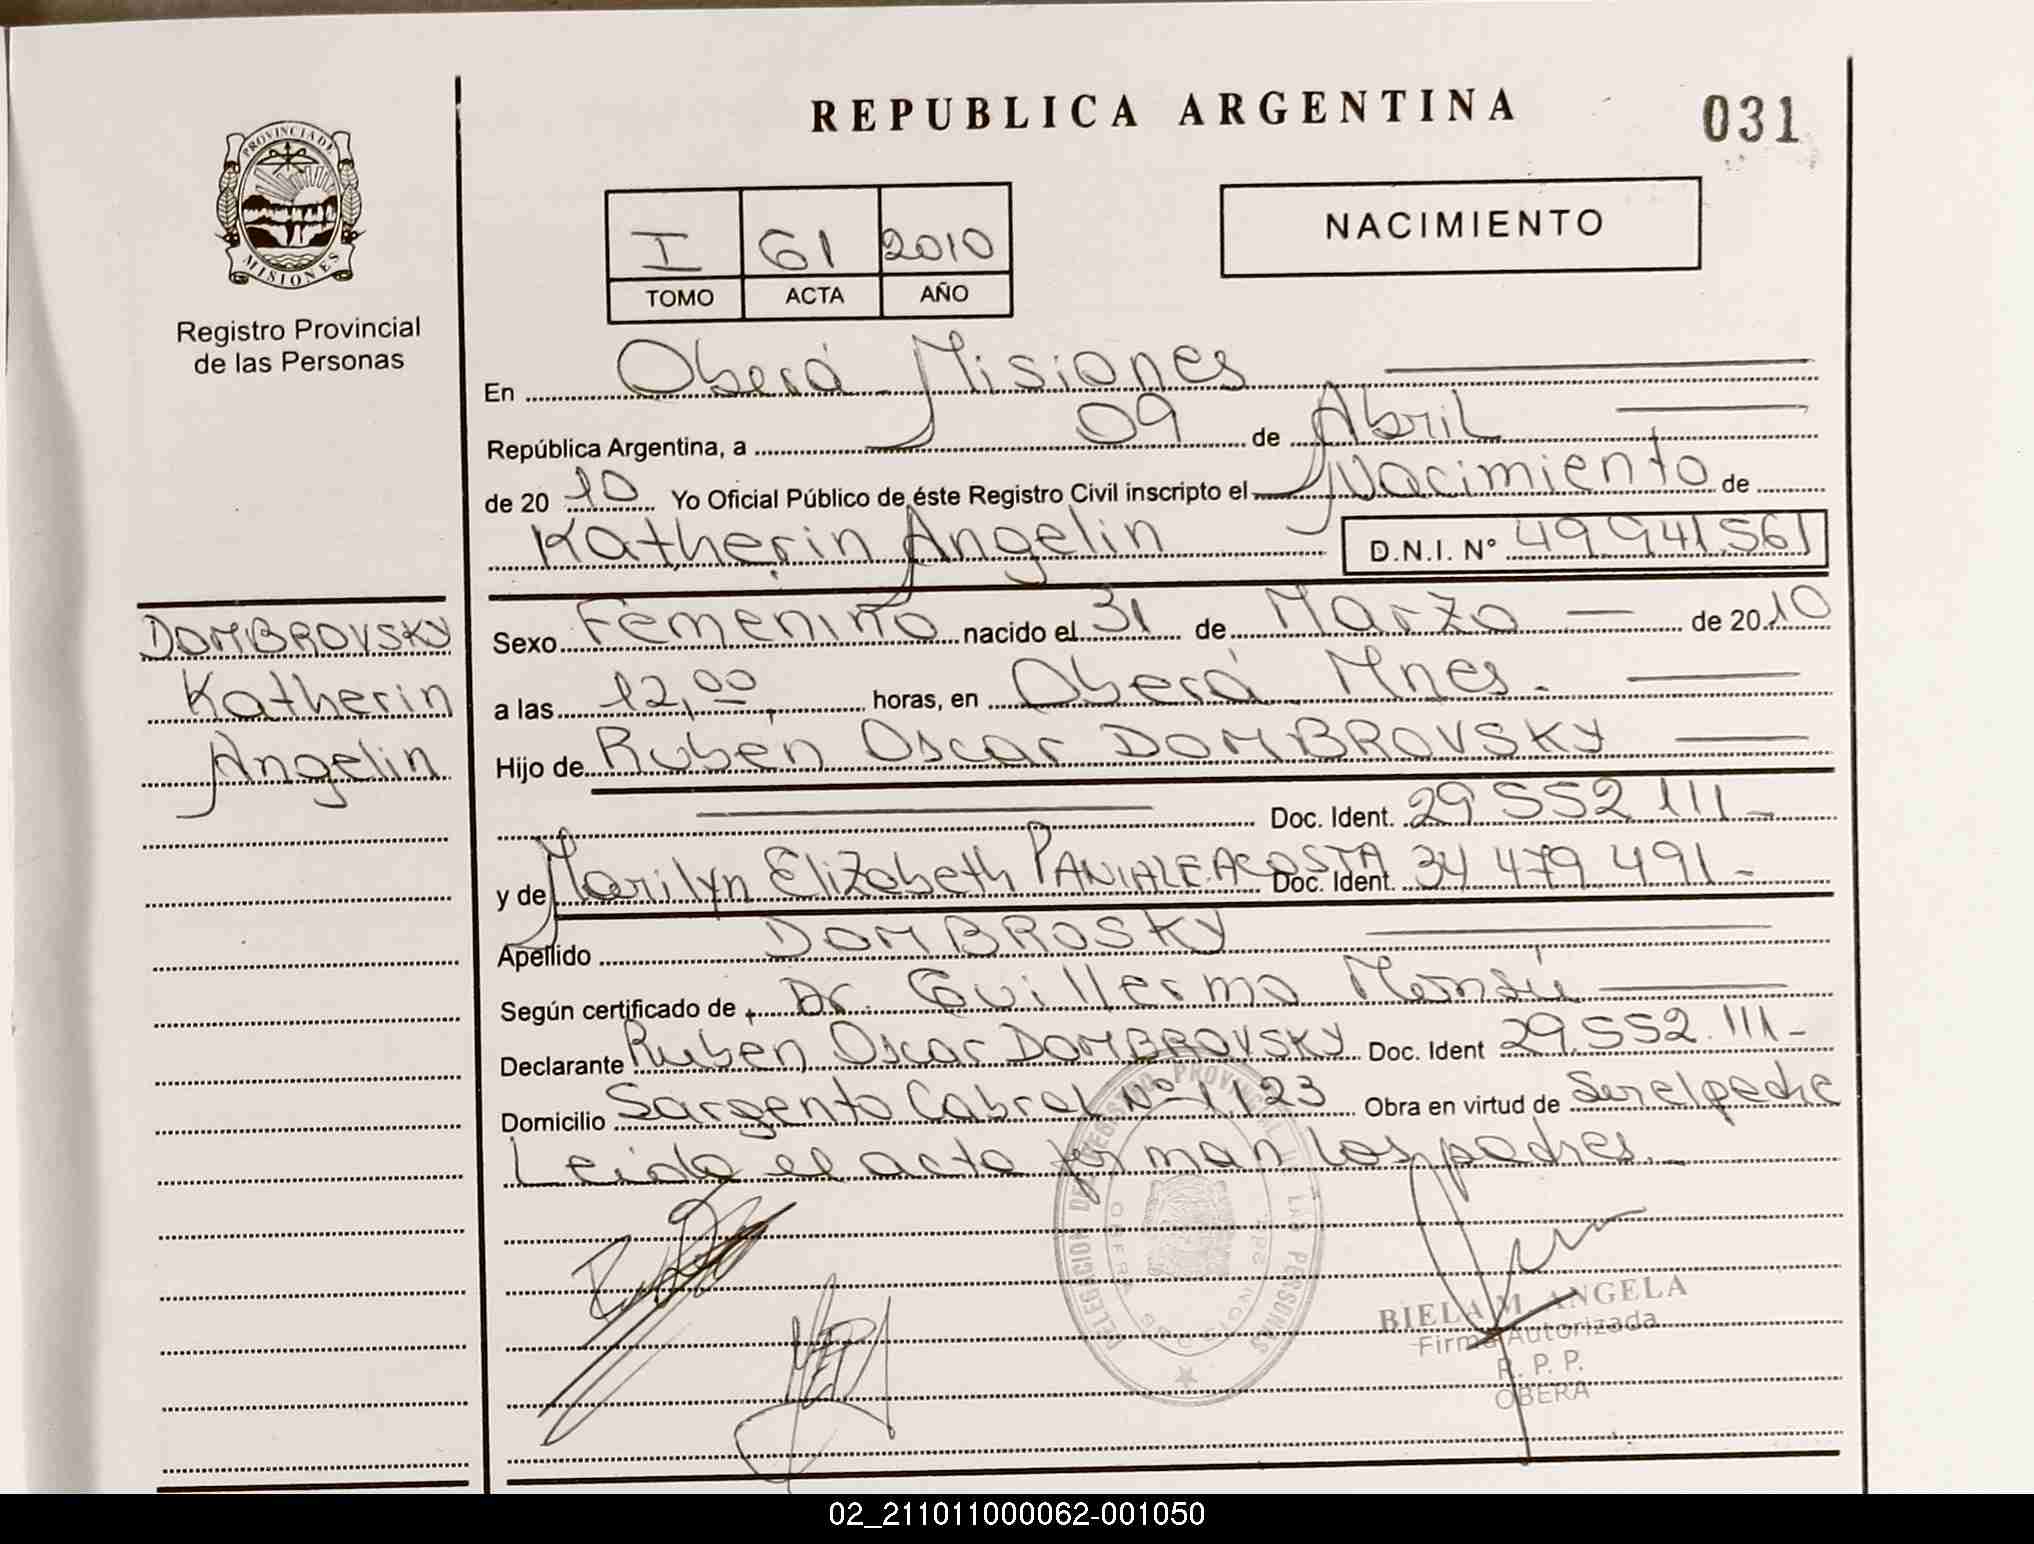 REPUBLICA ARGENTINA
031
PROVINCIA DE
MISIONES
Registro Provincial
de las Personas
I 61 2010
TOMO ACTA AÑO
NACIMIENTO
En Oberá Misiones
República Argentina, a 09 de Abril
de 2010 Yo Oficial Público de éste Registro Civil inscripto el Nacimiento de
Katherin Angelin D.N.I. N° 49.941.561
DOMBROVSKY
Katherin
Angelin
Sexo Femenino nacido el 31 de Marzo de 2010
a las 12,00, horas, en Oberá Mnes.
Hijo de Ruben Oscar DOMBROVSKY
Doc. Ident. 29 552 111-
y de Marilyn Elizabeth ACOSTA Doc. Ident. 34 479 491-
Apellido DOMBROSKY
Según certificado de Dr. Guillermo
Declarante Ruben Oscar DOMBROVSKY Doc. Ident 29.552.111-
Domicilio Sargento Cabral Nº 1123 Obra en virtud de
Leida el acta firman los padres.
DELEGACION DEL REGISTRO PROVINCIAL DE LAS PERSONAS
OBERA
MISIONES
BIELA M. ANGELA
Firma Autorizada
R. P. P.
OBERA
02_211011000062-001050